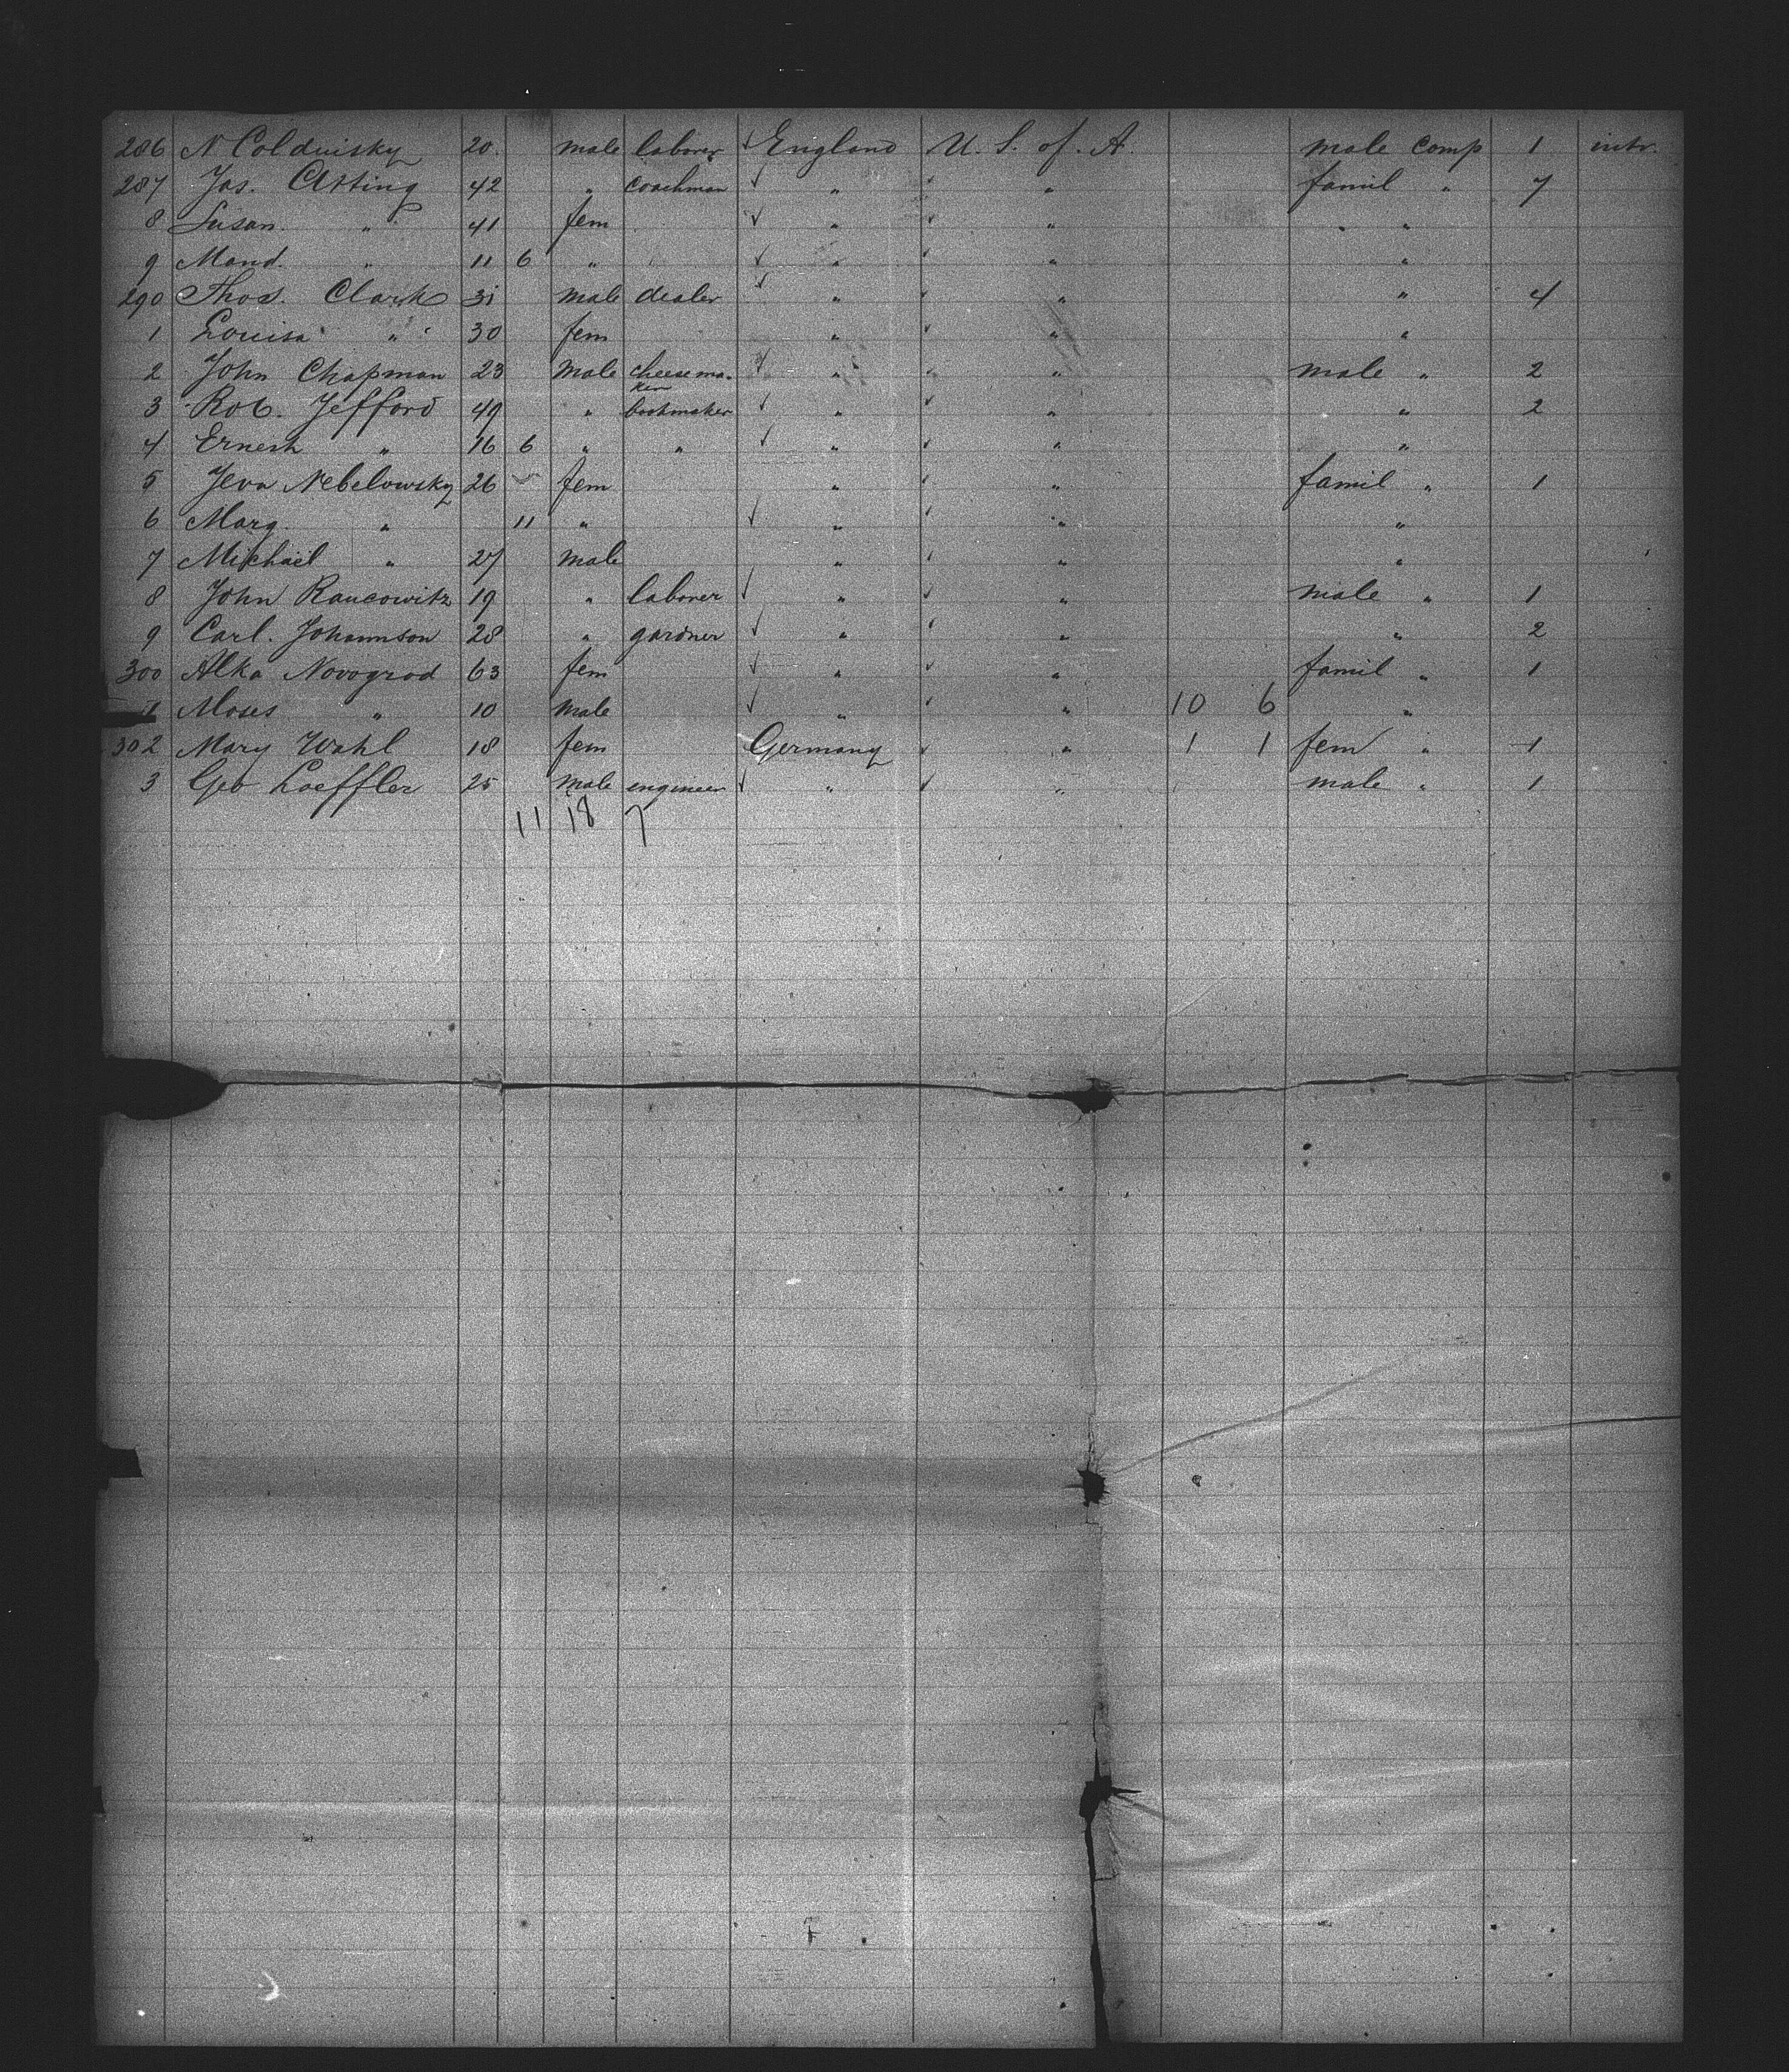 286 N Colduisky 20. male laborer England U. S. of. A. male comp 1 intr.
287 Jas. Atting 42 " coachman " " famil " 7
8 Susan. " 41 fem " " " "
9 Maud. " 11 6 " " " "
290 Thos. Clark 31 male dealer " " " 4
1 Louisa " 30 fem " " "
2 John Chapman 23 male cheesema- " " male " 2
ker
3 Rob. Jefford 49 " bootmaker " " " 2
4 Ernest " 16 6 " " " " "
5 Jeva Nebelowsky 26 fem " " famil " 1
6 Marg. " 11 " " " "
7 Michael " 27 male " " "
8 John Raucowitz 19 " laborer " " male " 1
9 Carl. Johannson 28 " gardner " " " 2
300 Alka Novogrod 63 fem " " famil " 1
1 Moses " 10 male " " 10 6 "
302 Mary Wahl 18 fem Germany " 1 1 fem " 1
3 Geo Loeffler 25 male engineer " " male " 1
11 18 7